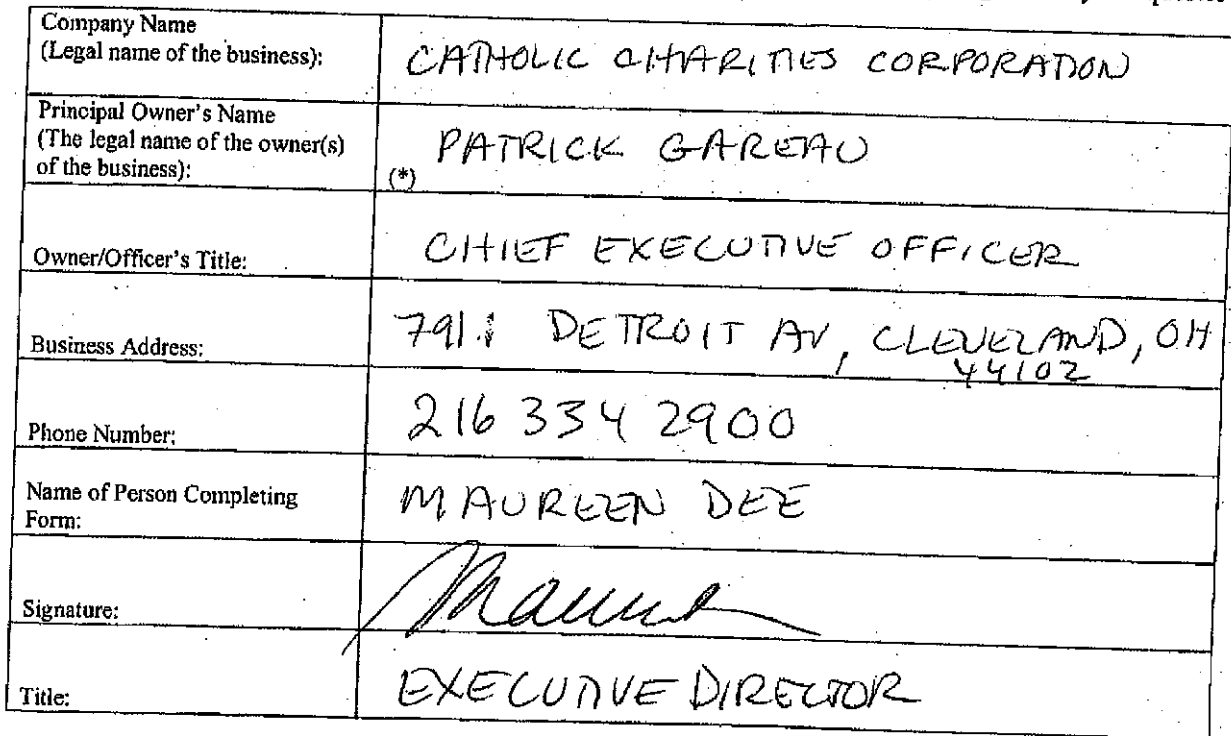 Company Name
(Legal name of the business):
CATHOLIC CHARITIES CORPORATION
Principal Owner's Name
(The legal name of the owner(s)
of the business):
(*)
PATRICK GAREAU
Owner/Officer's Title:
CHIEF EXECUTIVE OFFICER
Business Address:
7911 DETROIT AV, CLEVELAND, OH
44102
Phone Number:
216 334 2900
Name of Person Completing
Form:
MAUREEN DEE
Signature:
Title:
EXECUTIVE DIRECTOR